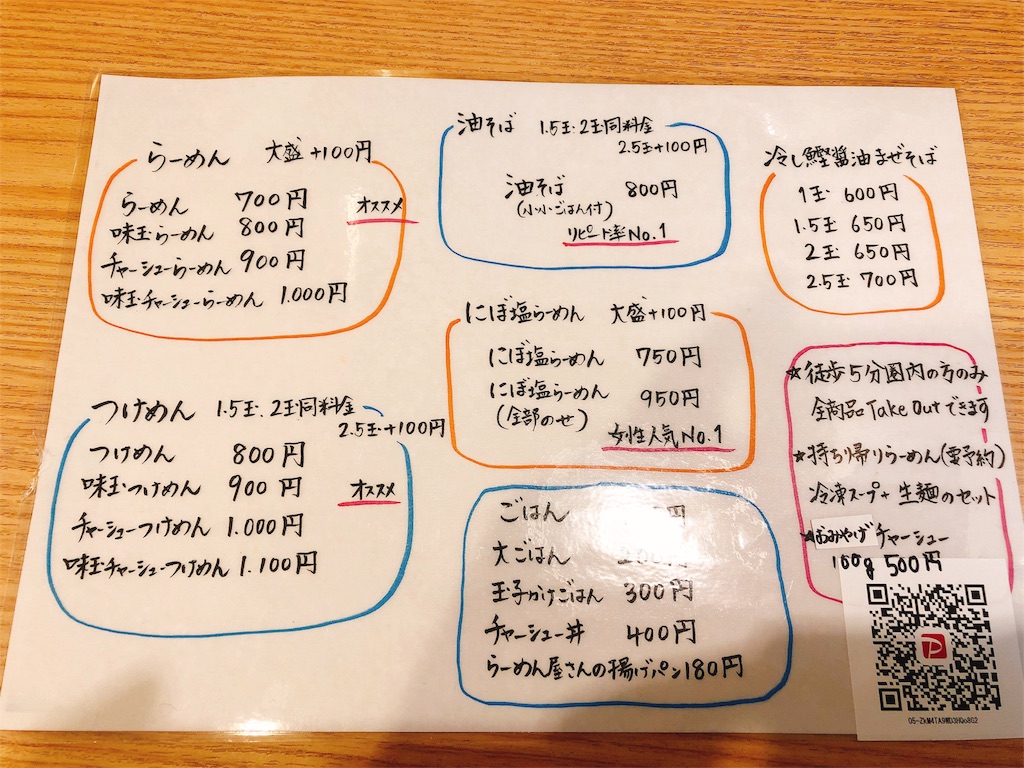 らーめん 大盛+100円
らーめん 700円 オススメ
味玉らーめん 800円
チャーシューらーめん 900円
味玉チャーシューらーめん 1.000円
つけめん 1.5玉、2玉同料金
2.5玉+100円
つけめん 800円
味玉つけめん 900円 オススメ
チャーシューつけめん 1.000円
味玉チャーシューつけめん 1.100円
油そば 1.5玉、2玉同料金
2.5玉+100円
油そば 800円
(小小ごはん付)
リピート率No.1
にぼ塩らーめん 大盛+100円
にぼ塩らーめん 750円
にぼ塩らーめん 950円
(全部のせ)
女性人気No.1
ごはん 円
大ごはん
玉子かけごはん 300円
チャーシュー丼 400円
らーめん屋さんの揚げパン180円
冷し鰹醤油まぜそば
1玉 600円
1.5玉 650円
2玉 650円
2.5玉 700円
★徒歩5分圏内の方のみ
全商品Take Outできます
★持ち帰りらーめん(要予約)
冷凍スープ+生麺のセット
★おみやげチャーシュー
100g 500円